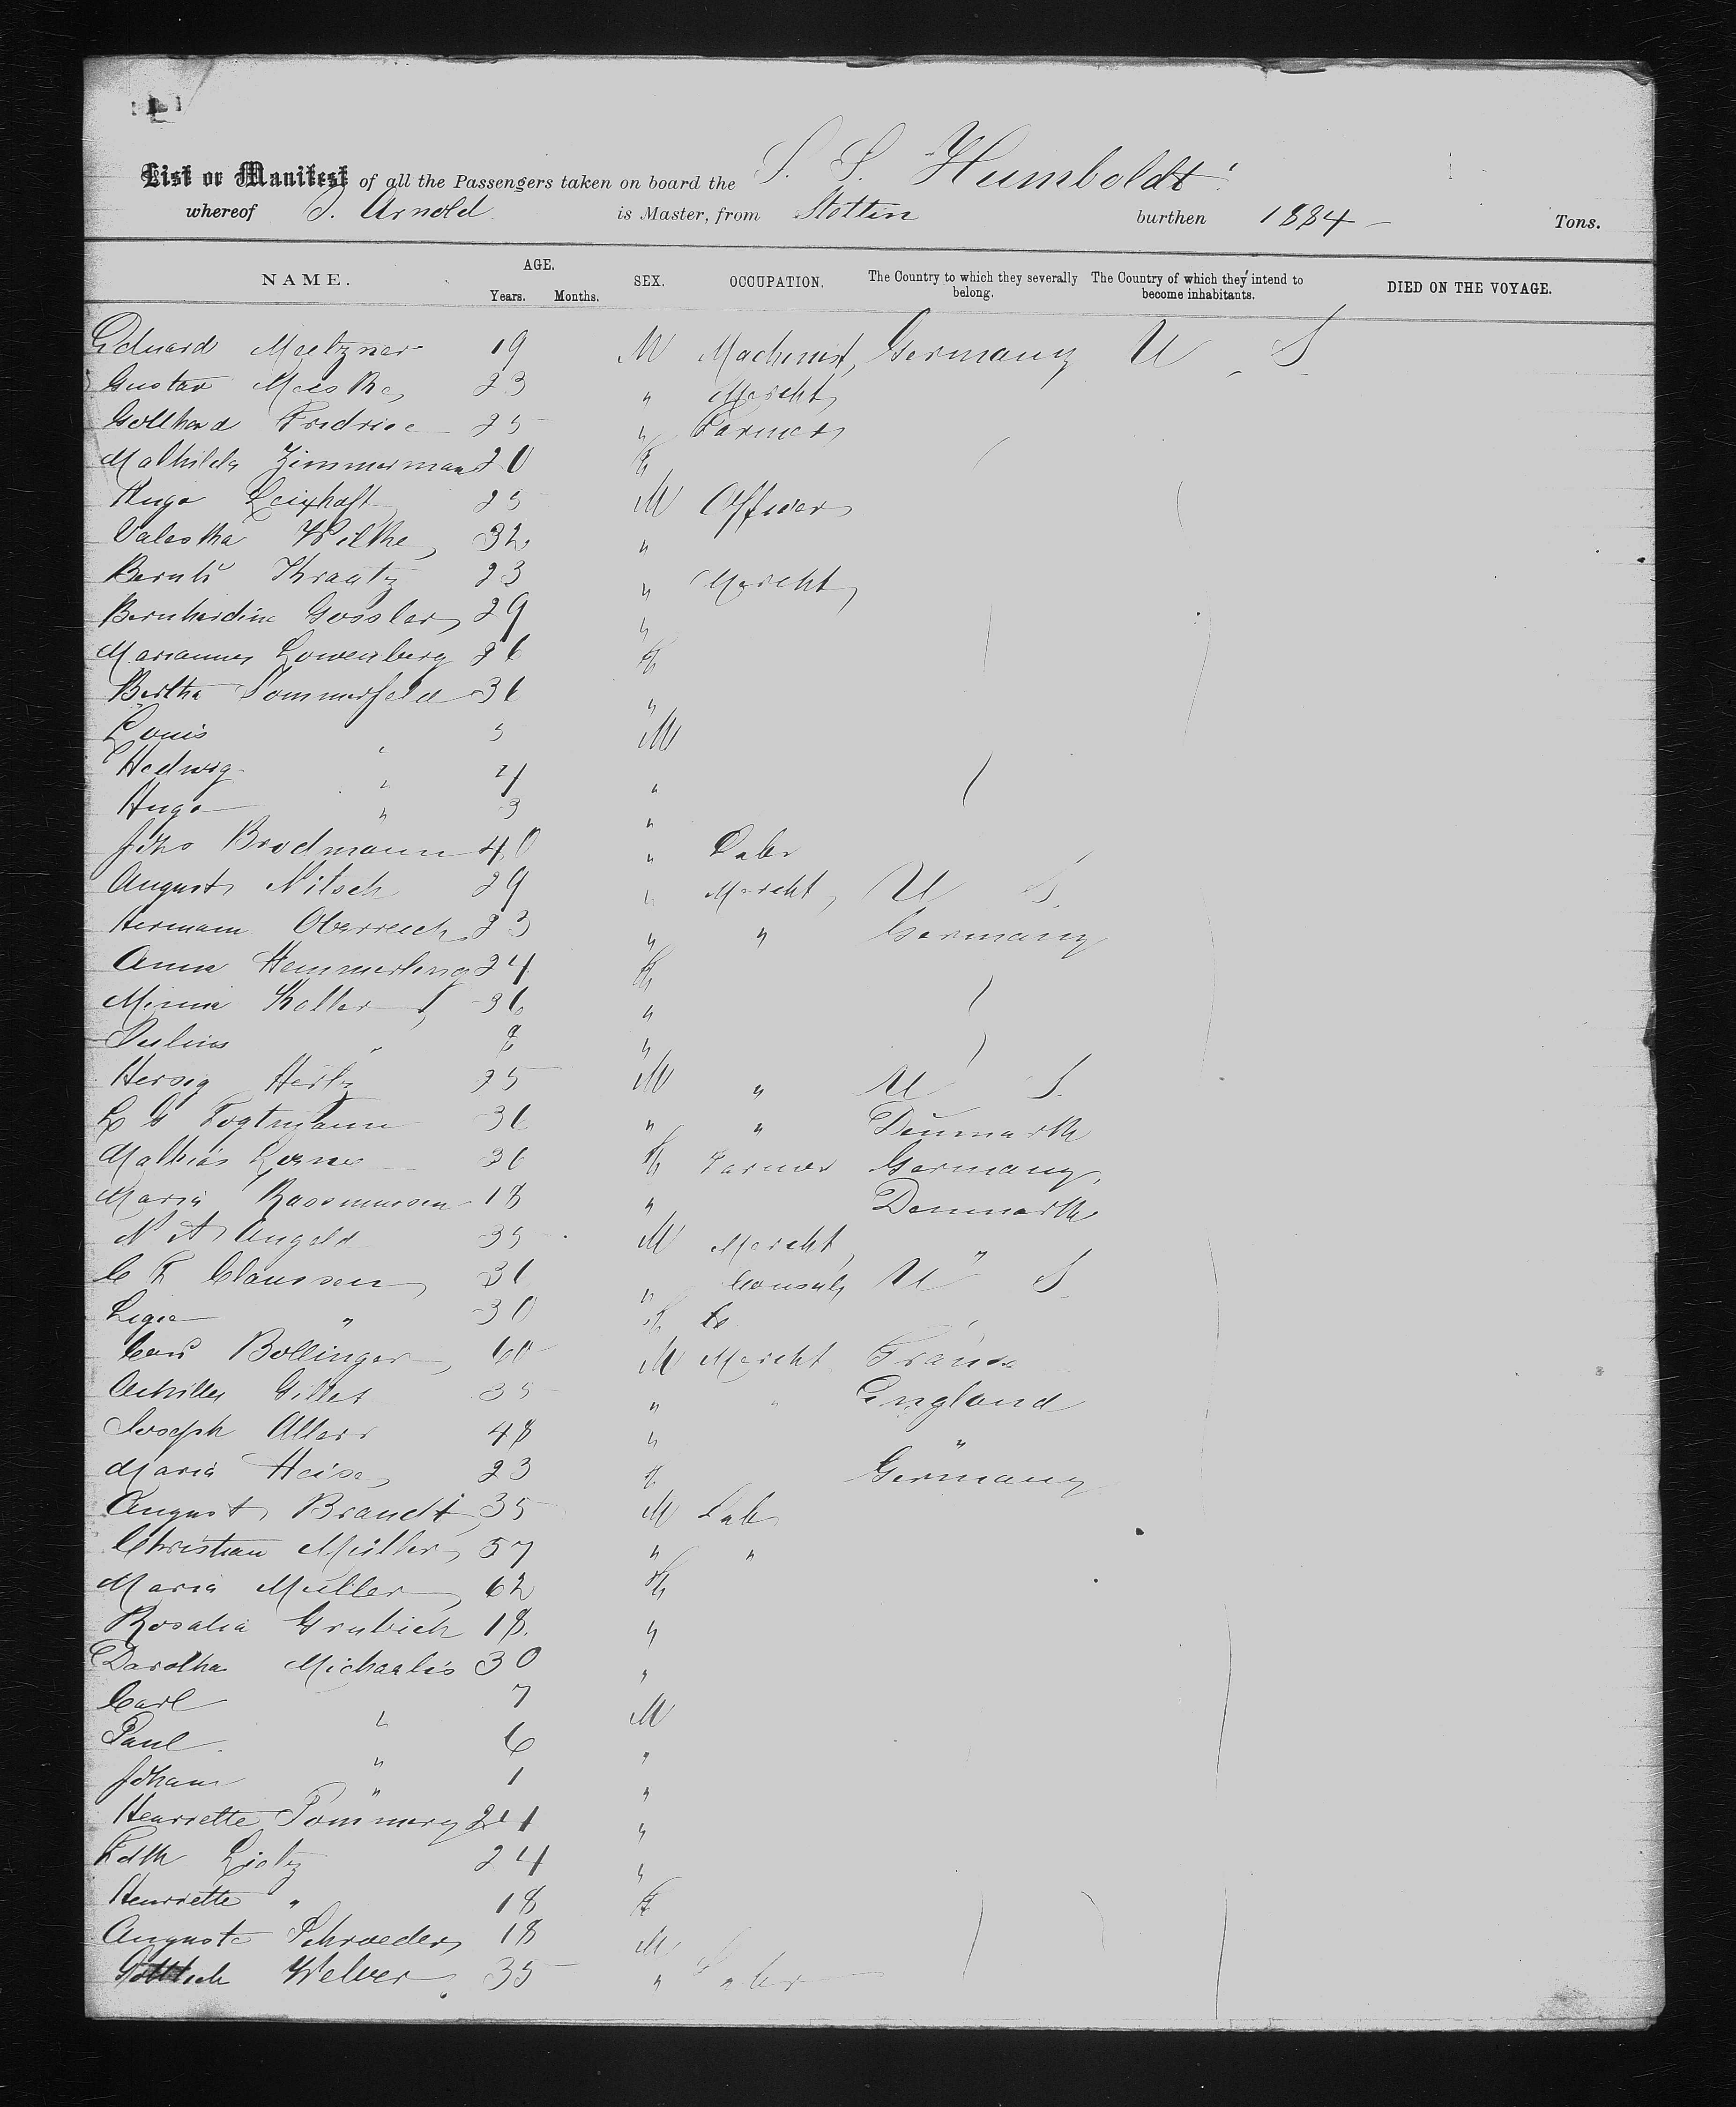 List or Manifest of all the Passengers taken on board the S. S. "Humboldt"
whereof J. Arnold is Master, from Stettin burthen 1884 — Tons.
NAME. AGE. Years. Months. SEX. OCCUPATION. The Country to which they severally belong. The Country of which they intend to become inhabitants. DIED ON THE VOYAGE.
Eduard Meetzner 19 M Machinist Germany U S
Gustav 23 " Mercht
Fredrice 25 " Farmer
Mathilda Zimmerman 20 F
Hugo 25 M Officer
Valeska Wilke 32 "
Kraatz 23 " Mercht
Bernherdine Gossler 29 "
Marianna Lowenberg 26 F
Bertha Sommerfeld 36 "
Louis " 5 M
Hedwig " 4 "
Hugo " 3 "
Johs Brodmann 40 " Labr
August Nitsch 29 " Mercht U S.
Hermann Oberreich 23 " " Germany
Anna Hemmerling 24 F
Minna Koller 36 "
Julius " "
Hertz 25 M " U S.
36 " " Denmark
Mathias 36 F Farmer Germany
Maria Rassmussen 18 " Denmark
N A Angeld 35 M Mercht "
C F Claussen 36 " Consul U S.
" 30 F
Bollinger 60 M Mercht France
Achilles Gilles 35 " " England
Joseph 48 " "
Maria Heise 23 F Germany
August Brandt 35 M Labr
Christian Müller 57 " "
Maria Müller 62 F
Rosalia Grubich 18 "
Dorothea Michaelis 30 "
Carl " 7 M
Paul " 6 "
Johann " 1 "
Henriette 24 "
Lietz 24 "
Henriette " 18 F
Auguste Schroeder 18 M
Welver 35 " Labr